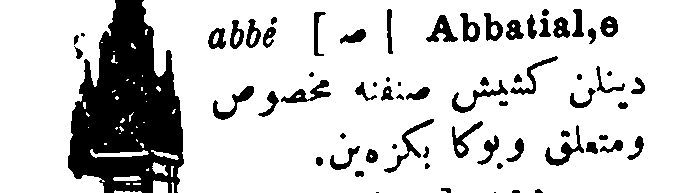 Abbatial,e [ ص ] abbé
دینلن کشیش صنفنه مخصوص
ومتعلق وبوکا بکزەین.